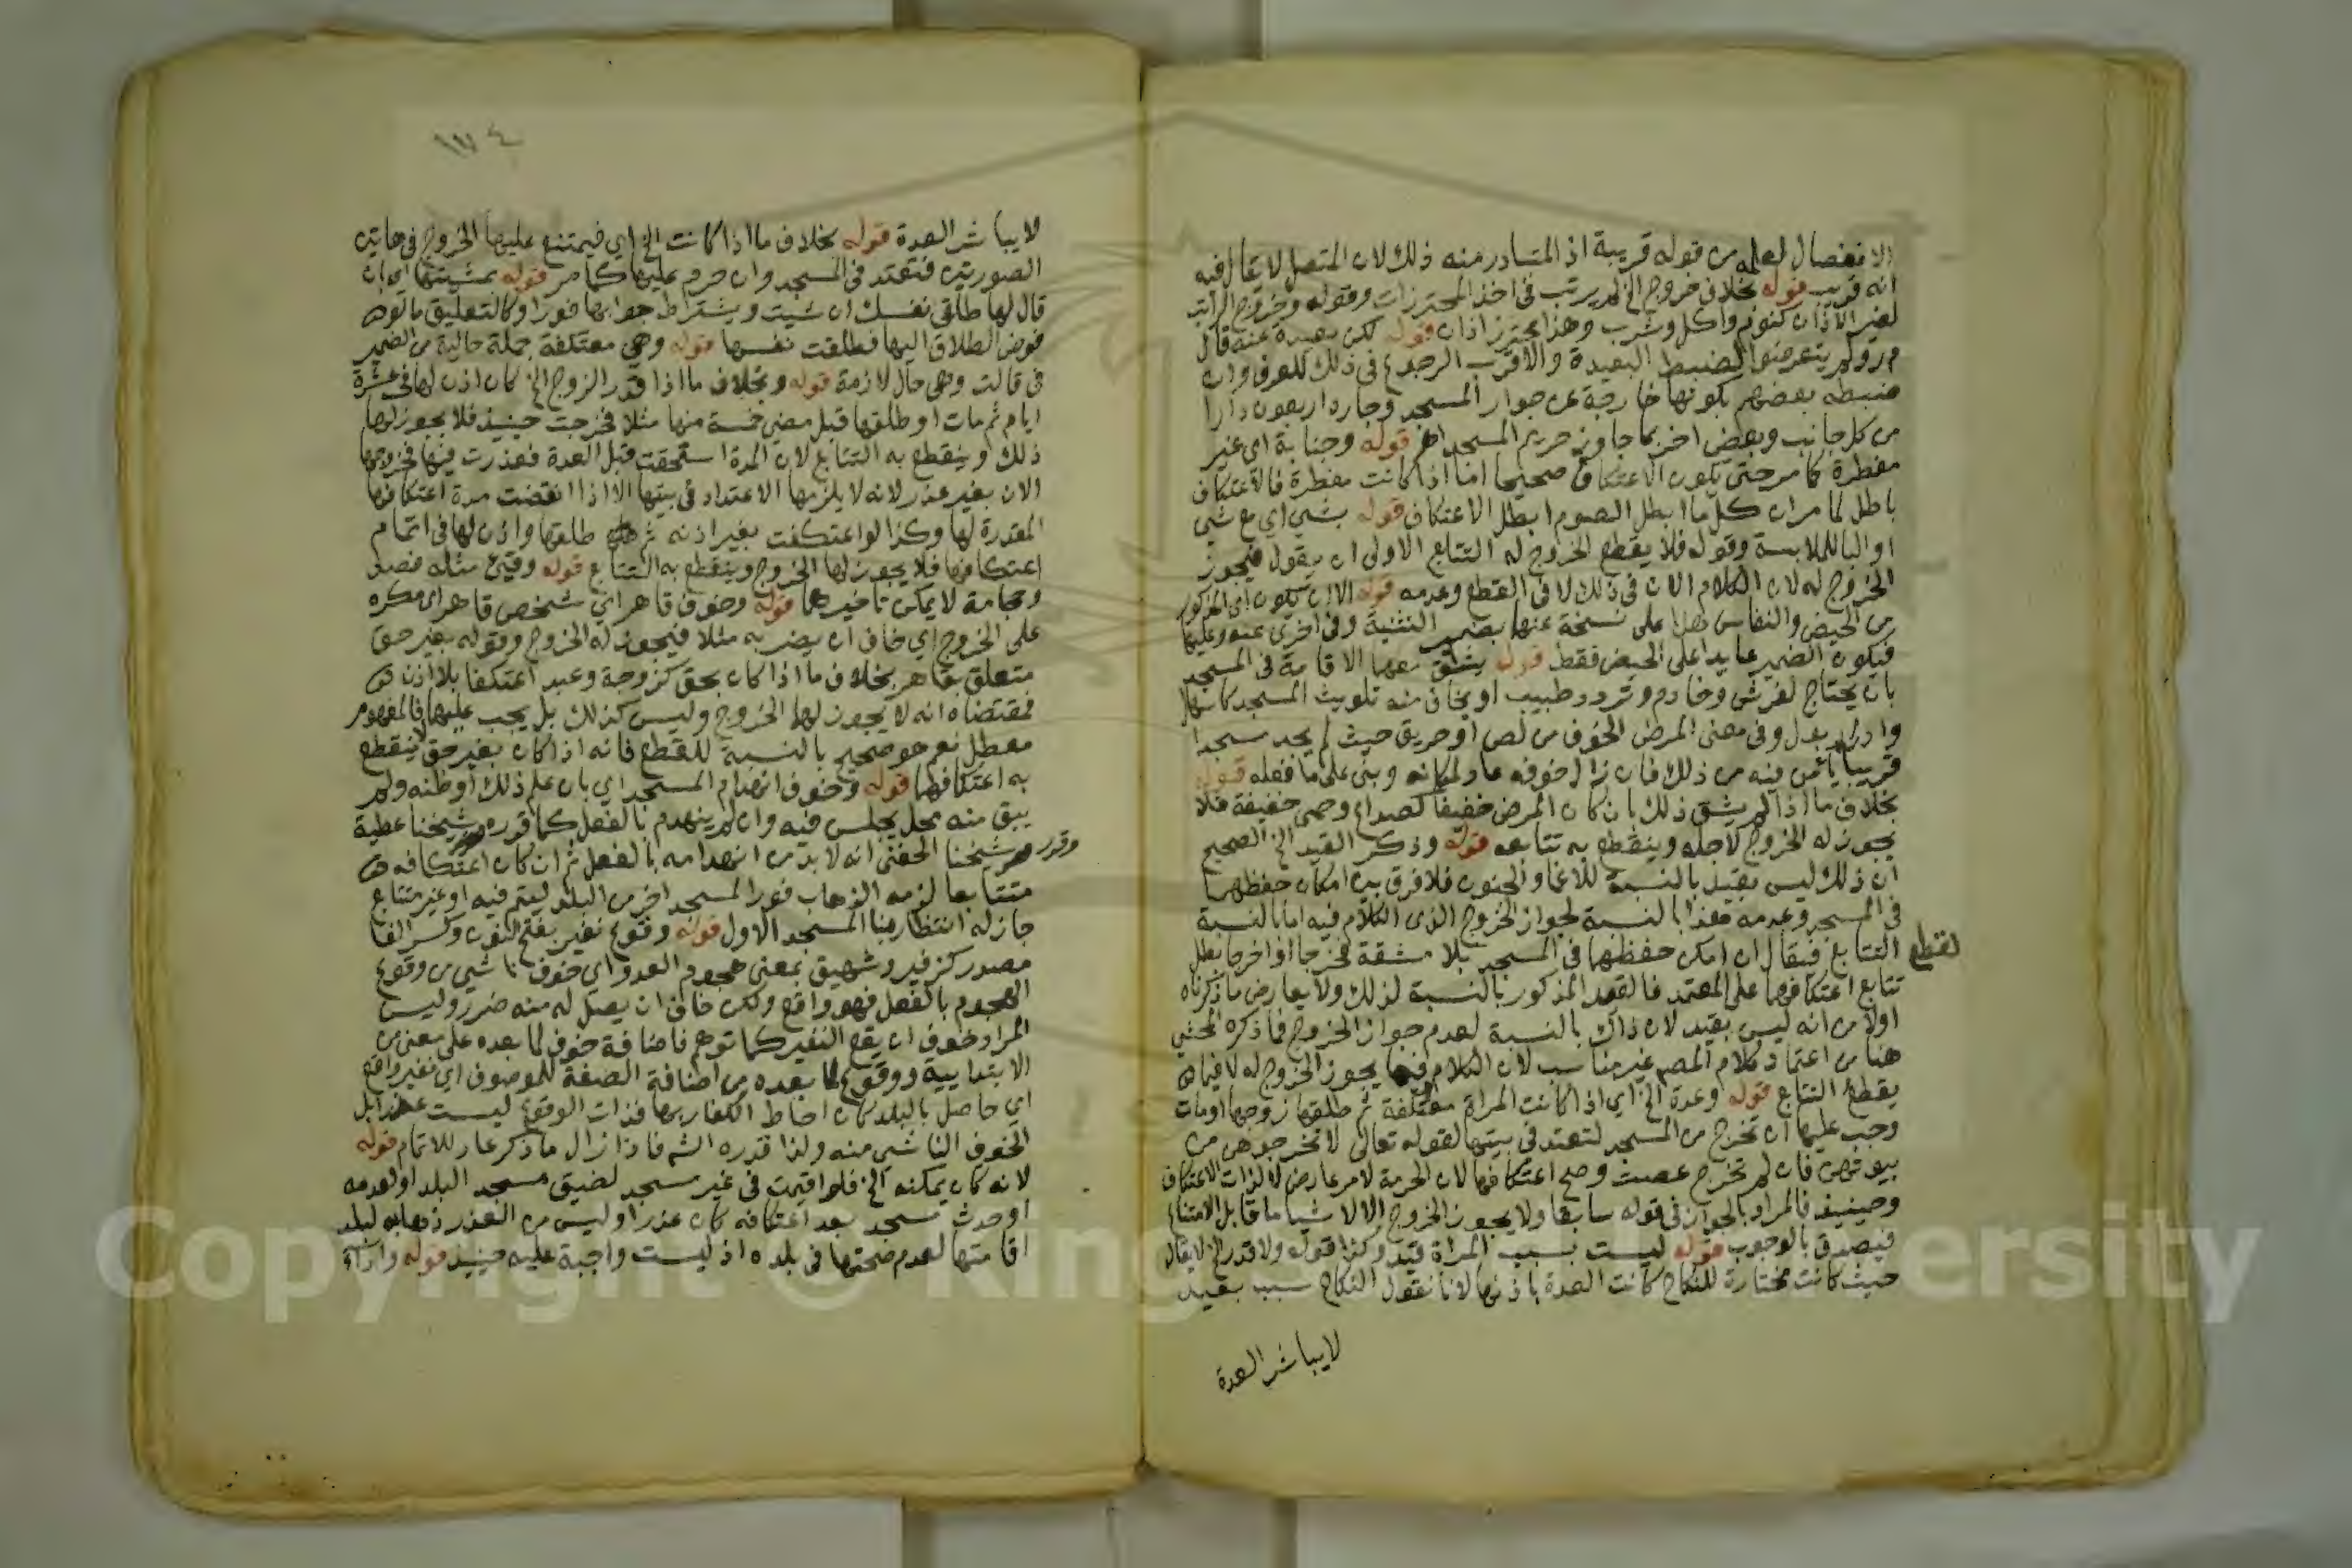 الانفصال لعلمه من قوله قريبة اذ المتبادر منه ذلك لان المتصل لا يقال فيه
انه قريب قوله بخلاف خروج الخ لم يرتب في اخذ المحترزات وقوله وخروج الراتب
لغير الاذان كنوم واكل وشرب وهذا محترز اذان قوله لكن بعيدة عنه قال
م ر ولم يتعرضوا لضبط البعيدة والاقرب الرجوع في ذلك للعرف وان
ضبطه بعضهم بكونها خارجة عن جوار المسجد وجاره اربعون دارا
من كل جانب وبعض اخر بما جاوز حريم المسجد اهـ قوله وجنابة اي غير
مفطرة كما مر حتى يكون الاعتكاف صحيحا اما اذا كانت مفطرة فالاعتكاف
باطل لما مر ان كل ما ابطل الصوم ابطل الاعتكاف قوله بشي اي مع شي
او البا للملابسة وقوله فلا يقطع الخروج له التتابع الاولى ان يقول فيجوز
الخروج له لان الكلام الان في ذلك لا في القطع وعدمه قوله الا ان يكون اي المذكور
من الحيض والنفاس هذا على نسخة عنها بضمير التثنية وفي اخرى عنه وعليها
فيكون الضمير عايدا على الحيض فقط قوله يشق معها الاقامة في المسجد
بان يحتاج لفرش وخادم وتردد طبيب او يخاف منه تلويث المسجد كاسهال
وادرار بول وفي معنى المرض الخوف من لص او حريق حيث لم يجد مسجدا
قريبا يأمن فيه من ذلك فان زال خوفه عاد لمكانه وبنى على ما فعله قوله
بخلاف ما اذا لم يشق ذلك بان كان المرض خفيفا كصداع وحمى خفيفة فلا
يجوز له الخروج لاجله وينقطع به تتابعه قوله وذكر القيد الخ الصحيح
ان ذلك ليس بقيد بالنسبة للاغما والجنون فلا فرق بين امكان حفظهما
في المسجد وعدمه هذا بالنسبة لجواز الخروج الذي الكلام فيه اما بالنسبة
لقطع
التتابع فيقال ان امكن حفظهما في المسجد بلا مشقة فخرجا او اخرجا بطل
تتابع اعتكافهما على المعتمد فالقيد المذكور بالنسبة لذلك ولا يعارض ما ذكرناه
اولا من انه ليس بقيد لان ذاك بالنسبة لعدم جواز الخروج فما ذكره المحشي
هنا من اعتماد كلام المصـ غير مناسب لان الكلام فيما يجوز الخروج له لا فيما
يقطع التتابع قوله وعدة الخ اي اذا كانت المراة معتكفة ثم طلقها زوجها او مات
وجب عليها ان تخرج من المسجد لتعتد في بيتها لقوله تعالى لا تخرجوهن من
بيوتهن فان لم تخرج عصت وصح اعتكافها لان الحرمة لامر عارض لا لذات الاعتكاف
وحينيذ فالمراد بالجواز في قوله سابقا ولا يجوز الخروج الا لاشيا ما قابل الامتناع
فيصدق بالوجوب قوله ليست بسبب المراة قيد وكذا قوله ولا قدر الخ لا يقال
حيث كانت مختارة للنكاح كانت العدة باذنها لانا نقول النكاح سبب بعيد
لا يباشر العدة
لا يباشر العدة قوله بخلاف ما اذا كانت الخ اي فيمتنع عليها الخروج في هاتين
الصورتين فتعتد في المسجد وان حرم عليها كما مر قوله بمشيتها اي ان
قال لها طلقي نفسك ان شيت ويشترط جوابها فورا وكالتعليق ما لو
فوض الطلاق اليها فطلقت نفسها قوله وهي معتكفة جملة حالية من الضمير
في قالت وهي حال لازمة قوله وبخلاف ما اذا قدر الزوج الخ كان اذن لها في عشرة
ايام ثم مات او طلقها قبل مضي خمسة منها مثلا فخرجت حينيذ فلا يجوز لها
ذلك وينقطع به التتابع لان المدة استحقت قبل العدة فعذرت فيها فخروجها
الان بغير عذر لانه لا يلزمها الاعتداد في بيتها الا اذا انقضت مدة اعتكافها
المقدرة لها وكذا لو اعتكفت بغير اذنه ثم طلقها واذن لها في اتمام
اعتكافها فلا يجوز لها الخروج وينقطع به التتابع قوله وقيئ مثله فصد
وحجامة لا يمكن تاخيرهما قوله وخوف قاهر اي شخص قاهر اي مكره
على الخروج اي خاف ان يضربه مثلا فيجوز له الخروج وقوله بغير حق
متعلق بقاهر بخلاف ما اذا كان بحق كزوجة وعبد اعتكفا بلا اذن
فمقتضاه انه لا يجوز لهما الخروج وليس كذلك بل يجب عليهما فالمفهوم
معطل نعم هو صحيح بالنسبة للقطع فانه اذا كان بغير حق لا ينقطع
به اعتكافهما قوله وخوف انهدام المسجد اي بان علم ذلك او ظنه ولم
يبق منه محل يجلس فيه وان لم ينهدم بالفعل كما قرره شيخنا عطية
وقرر
شيخنا الحفني انه لا بد من انهدامه بالفعل ثم ان كان اعتكافه
متتابعا لزمه الذهاب فورا لمسجد اخر من البلد ليتم فيه او غير متتابع
جاز له انتظار بنا المسجد الاول قوله وقوع نفير بفتح النون وكسر الفا
مصدر كزفير وشهيق بمعنى هجوم العدو اي خوف ناشي من وقوع
الهجوم بالفعل فهو واقع ولكن خاف ان يصل له منه ضرر وليس
المراد خوف ان يقع النفير كما توهم فاضافة خوف لما بعده على معنى من
الابتدايية ووقوع لما بعده من اضافة الصفة للموصوف اي نفير واقع
اي حاصل بالبلد كان احاط الكفار بها فذات الوقوع ليست عذرا بل
الخوف الناشي منه ولذا قدره الشـ فاذا زال ما ذكر عاد للاتمام قوله
لانه كان يمكنه الخ فلو اقيمت في غير مسجد لضيق مسجد البلد او لعدمه
او حدث مسجد بعد اعتكافه كان عذرا وليس من العذر ذهابه لبلد
اقامتها لعدم صحتها في بلده اذ ليست واجبة عليه حينيذ قوله واذا
Copyright © King ersity